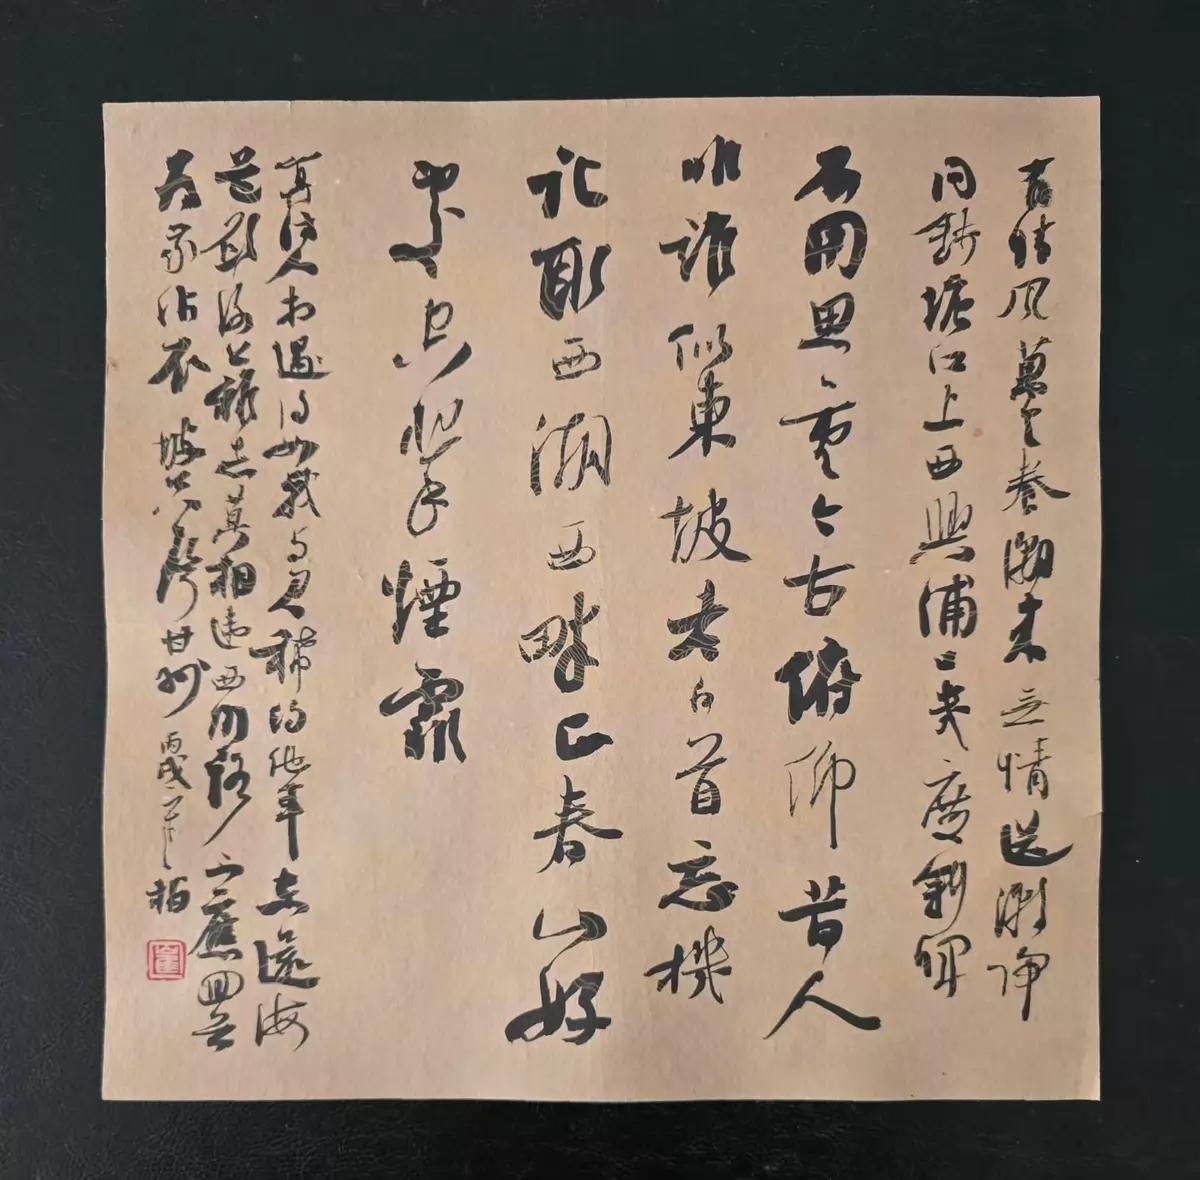 有情风萬里卷潮来无情送潮归
问錢塘江上西興浦口幾度斜暉
不用思量今古俯仰昔人
非誰似東坡老白首忘機
記取西湖西畔正春山好
處空翠煙霏
算詩人相得如我与君稀约他年东還海
道願謝公雅志莫相違西州路不應回首
为我沾衣 坡公八聲甘州 丙戌 柏